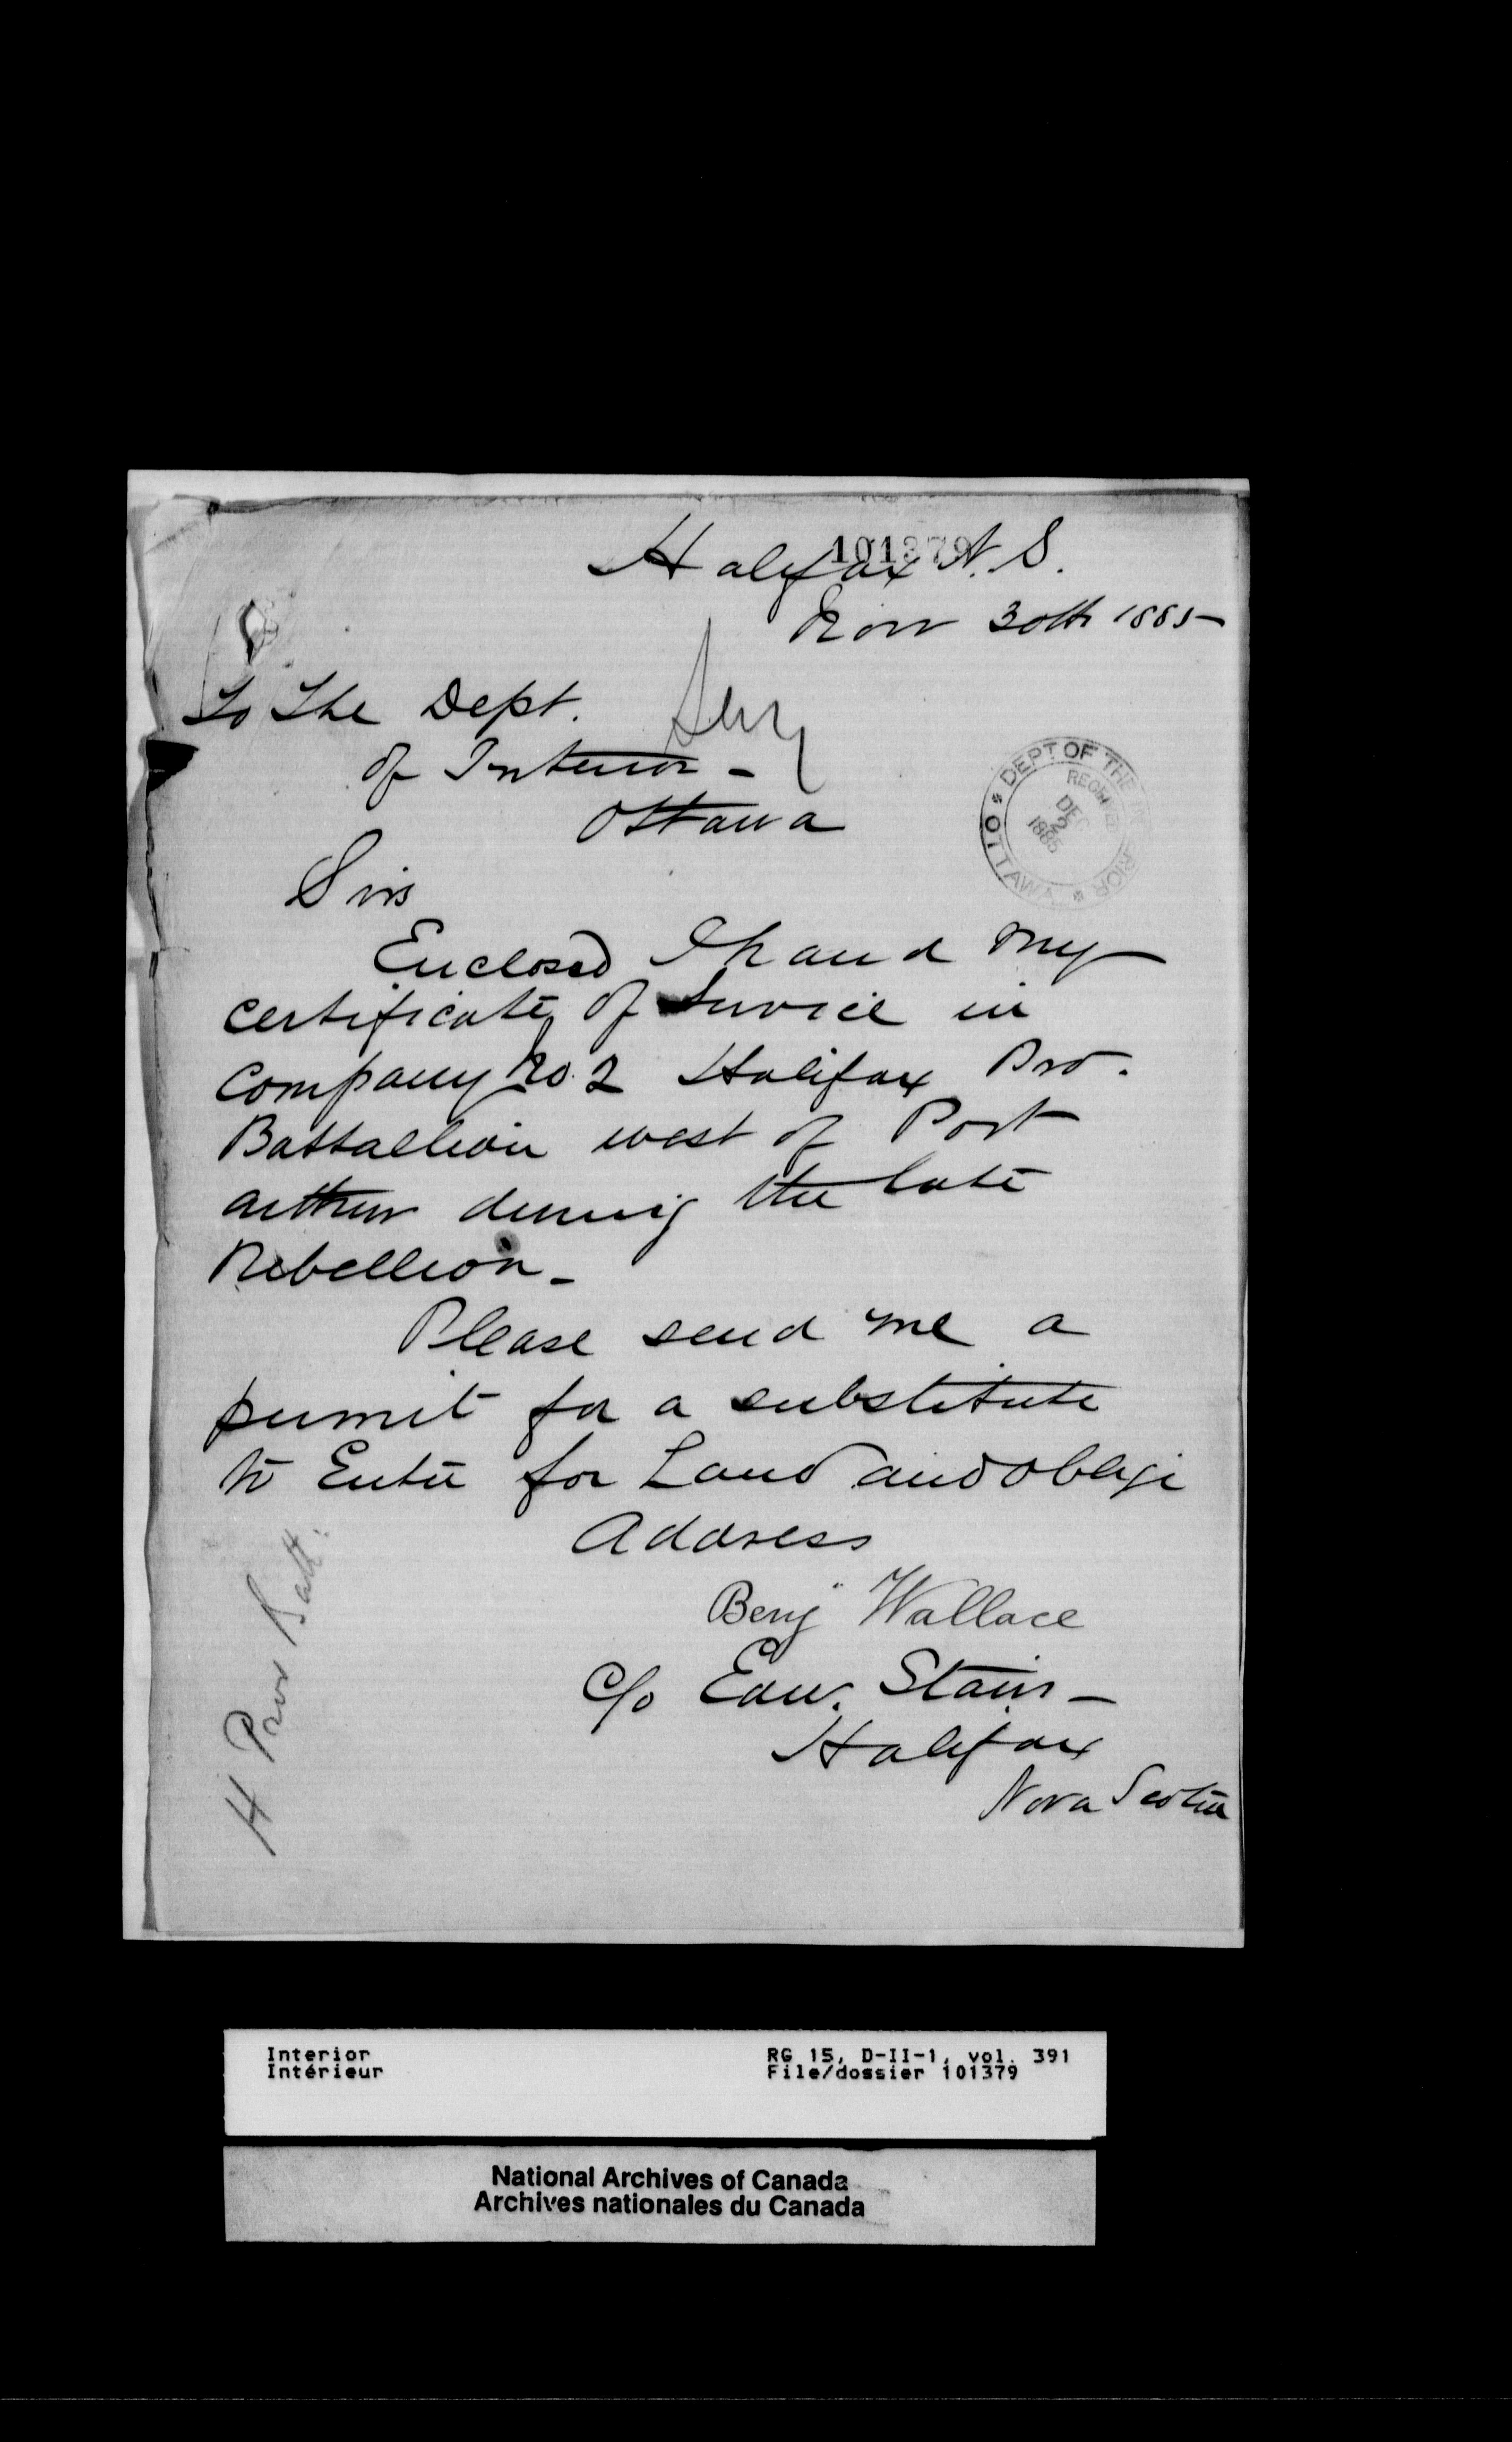 101379
Halifax N.S.
Nov 30th 1885
To The Dept.
of Interior -
Ottawa
DEPT OF THE INTERIOR
OTTAWA
RECEIVED
DEC
2
1885
Sirs
Enclosed I hand my
certificate of Service in
Company No. 2 Halifax Pro.
Battallion west of Port
arthur during the late
Rebellion -
Please send me a
permit for a substitute
to Enter for Land and oblige
Address
Benj" Wallace
c/o Edw. Stairs -
Halifax
Nova Scotia
H Prov Batt.
Interior
Intérieur
RG 15, D-II-1, vol. 391
File/dossier 101379
National Archives of Canada
Archives nationales du Canada